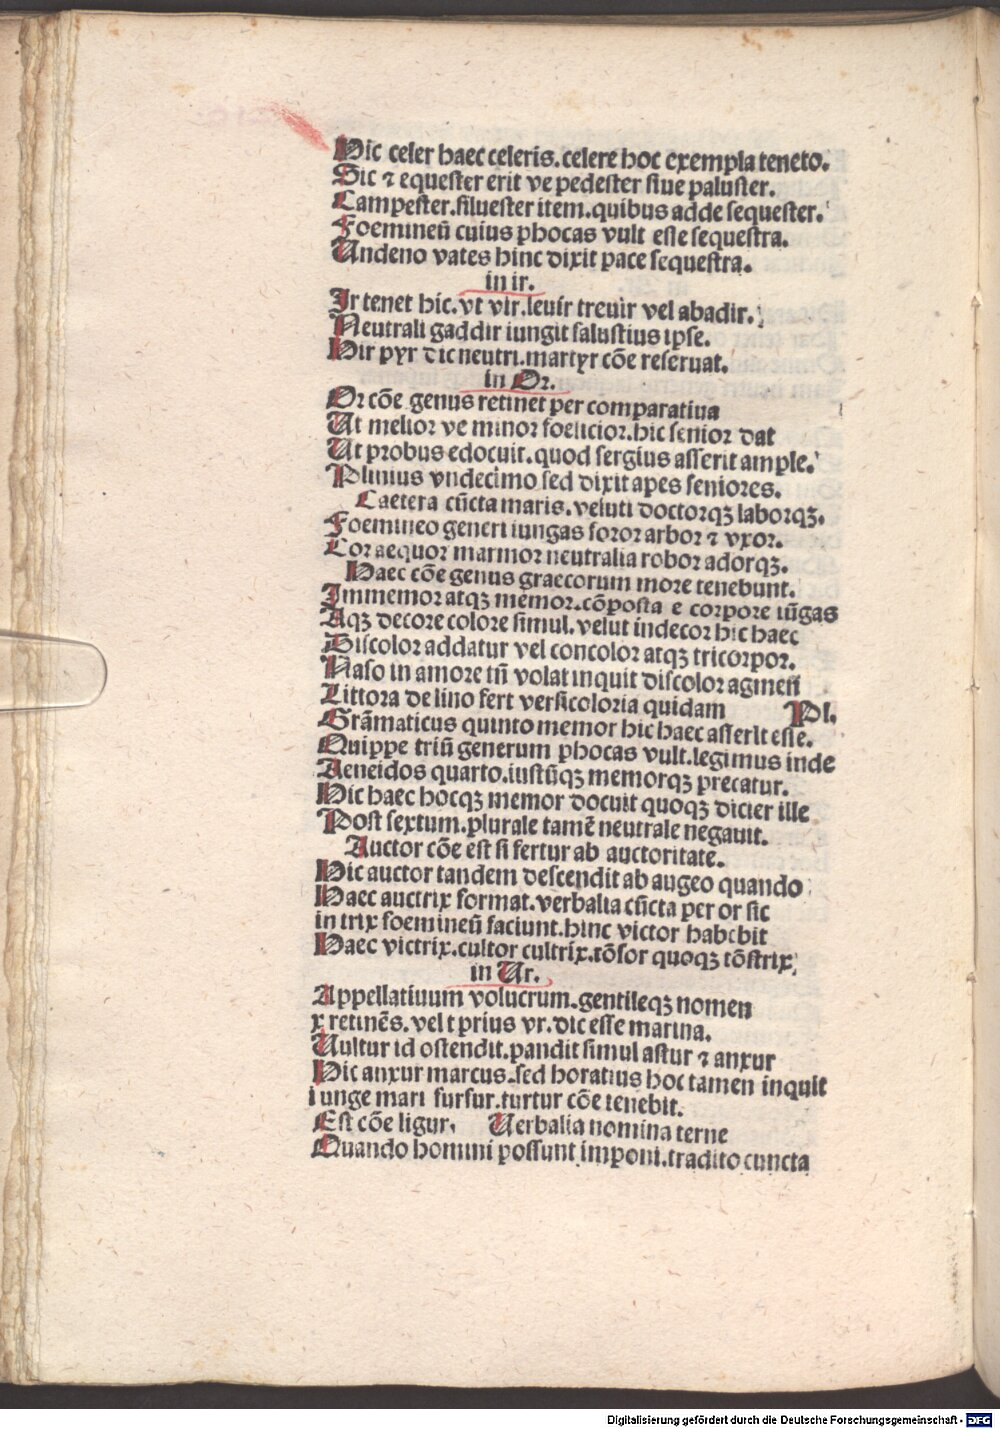 Hic celer haec celeris.celere hoc exempla teneto.
Sic ⁊ equester erit ve pedester siue paluster.
Campester.siluester item.quibus adde sequester.
Foemineū cuius phocas vult esse sequestra.
Undeno vates hinc dixit pace sequestra.
in ir.
Ir tenet hic.vt vir.leuir treuir vel abadir.
Neutrali gaddir iungit salustius ipse.
Hir pyr dic neutri.martyr cōe reseruat.
in Or.
Or cōe genus retinet per comparatiua
Ut melior ve minor foelicior.hic senior dat
Ut probus edocuit.quod sergius asserit ample.
Plinius vndecimo sed dixit apes seniores.
Caetera cūcta maris.veluti doctorqꝫ laborqꝫ.
Foemineo generi iungas soror arbor ⁊ vxor.
Cor aequor marmor neutralia robor adorqꝫ.
Haec cōe genus graecorum more tenebunt.
Immemor atqꝫ memor.cōposta e corpore iūgas
Aqꝫ decore colore simul.velut indecor hic haec
Discolor addatur vel concolor atqꝫ tricorpor.
Naso in amore tn̄ volat inquit discolor agmen
Littora de lino fert versicoloria quidam Pl.
Grāmaticus quinto memor hic haec asserit esse.
Quippe triū generum phocas vult.legimus inde
Aeneidos quarto.iustūqꝫ memorqꝫ precatur.
Hic haec hocqꝫ memor docuit quoqꝫ dicier ille
Post sextum.plurale tamē neutrale negauit.
Auctor cōe est si fertur ab auctoritate.
Hic auctor tandem descendit ab augeo quando
Haec auctrix format.verbalia cūcta per or sic
in trix foemineū faciunt.hinc victor habebit
Haec victrix.cultor cultrix.tōsor quoqꝫ tōstrix
in Ur.
Appellatiuum volucrum.gentileqꝫ nomen
x retinēs.vel t prius vr.dic esse marina.
Uultur id ostendit.pandit simul astur ⁊ anxur
Hic anxur marcus.sed horatius hoc tamen inquit
iunge mari furfur.turtur cōe tenebit.
Est cōe ligur. Uerbalia nomina terne
Quando homini possunt imponi.tradito cuncta
Digitalisierung gefördert durch die Deutsche Forschungsgemeinschaft - DFG